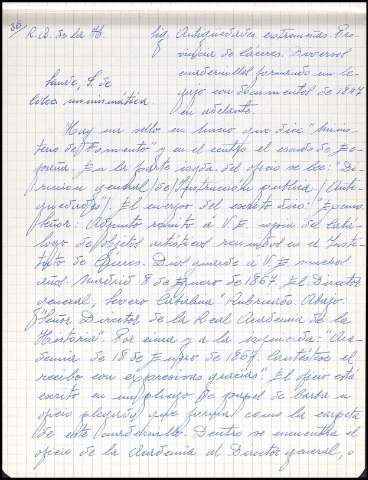 36/ R. A. de la H.
sig. Antigüedades extremeñas. Pro-
vincia de Cáceres. Diversos
cuadernillos formando un le-
gajo con documentos de 1867
en adelante.
Sande, L. de
colec. numismática
Hay un sello en hueco que dice "Minis-
terio de Fomento" y en el centro el escudo de Es-
paña. En la parte izqda del oficio se lee: "Di-
rección general de Instrucción pública. (Anti-
güedades). El cuerpo del escrito dice: "Excmo
Señor: Adjunto remito á V.E. copia del Catá-
logo de objetos artísticos reunidos en el Insti-
tuto de Cáceres. Dios guarde á V.E. muchos
años. Madrid 8 de Enero de 1867. El Director
general, Severo Catalina" Rubricado. Abajo:
"Señor Director de la Real Academia de la
Historia". Por cima y a la izquierda: "Aca-
demia de 18 de Enero de 1867. Contéstese el
recibo con expresivas gracias". El oficio está
escrito en un pliego de papel de barba u
oficio plegado que forma como la carpeta
de este cuadernillo. Dentro se encuentra el
oficio de la Academia al Director general, o